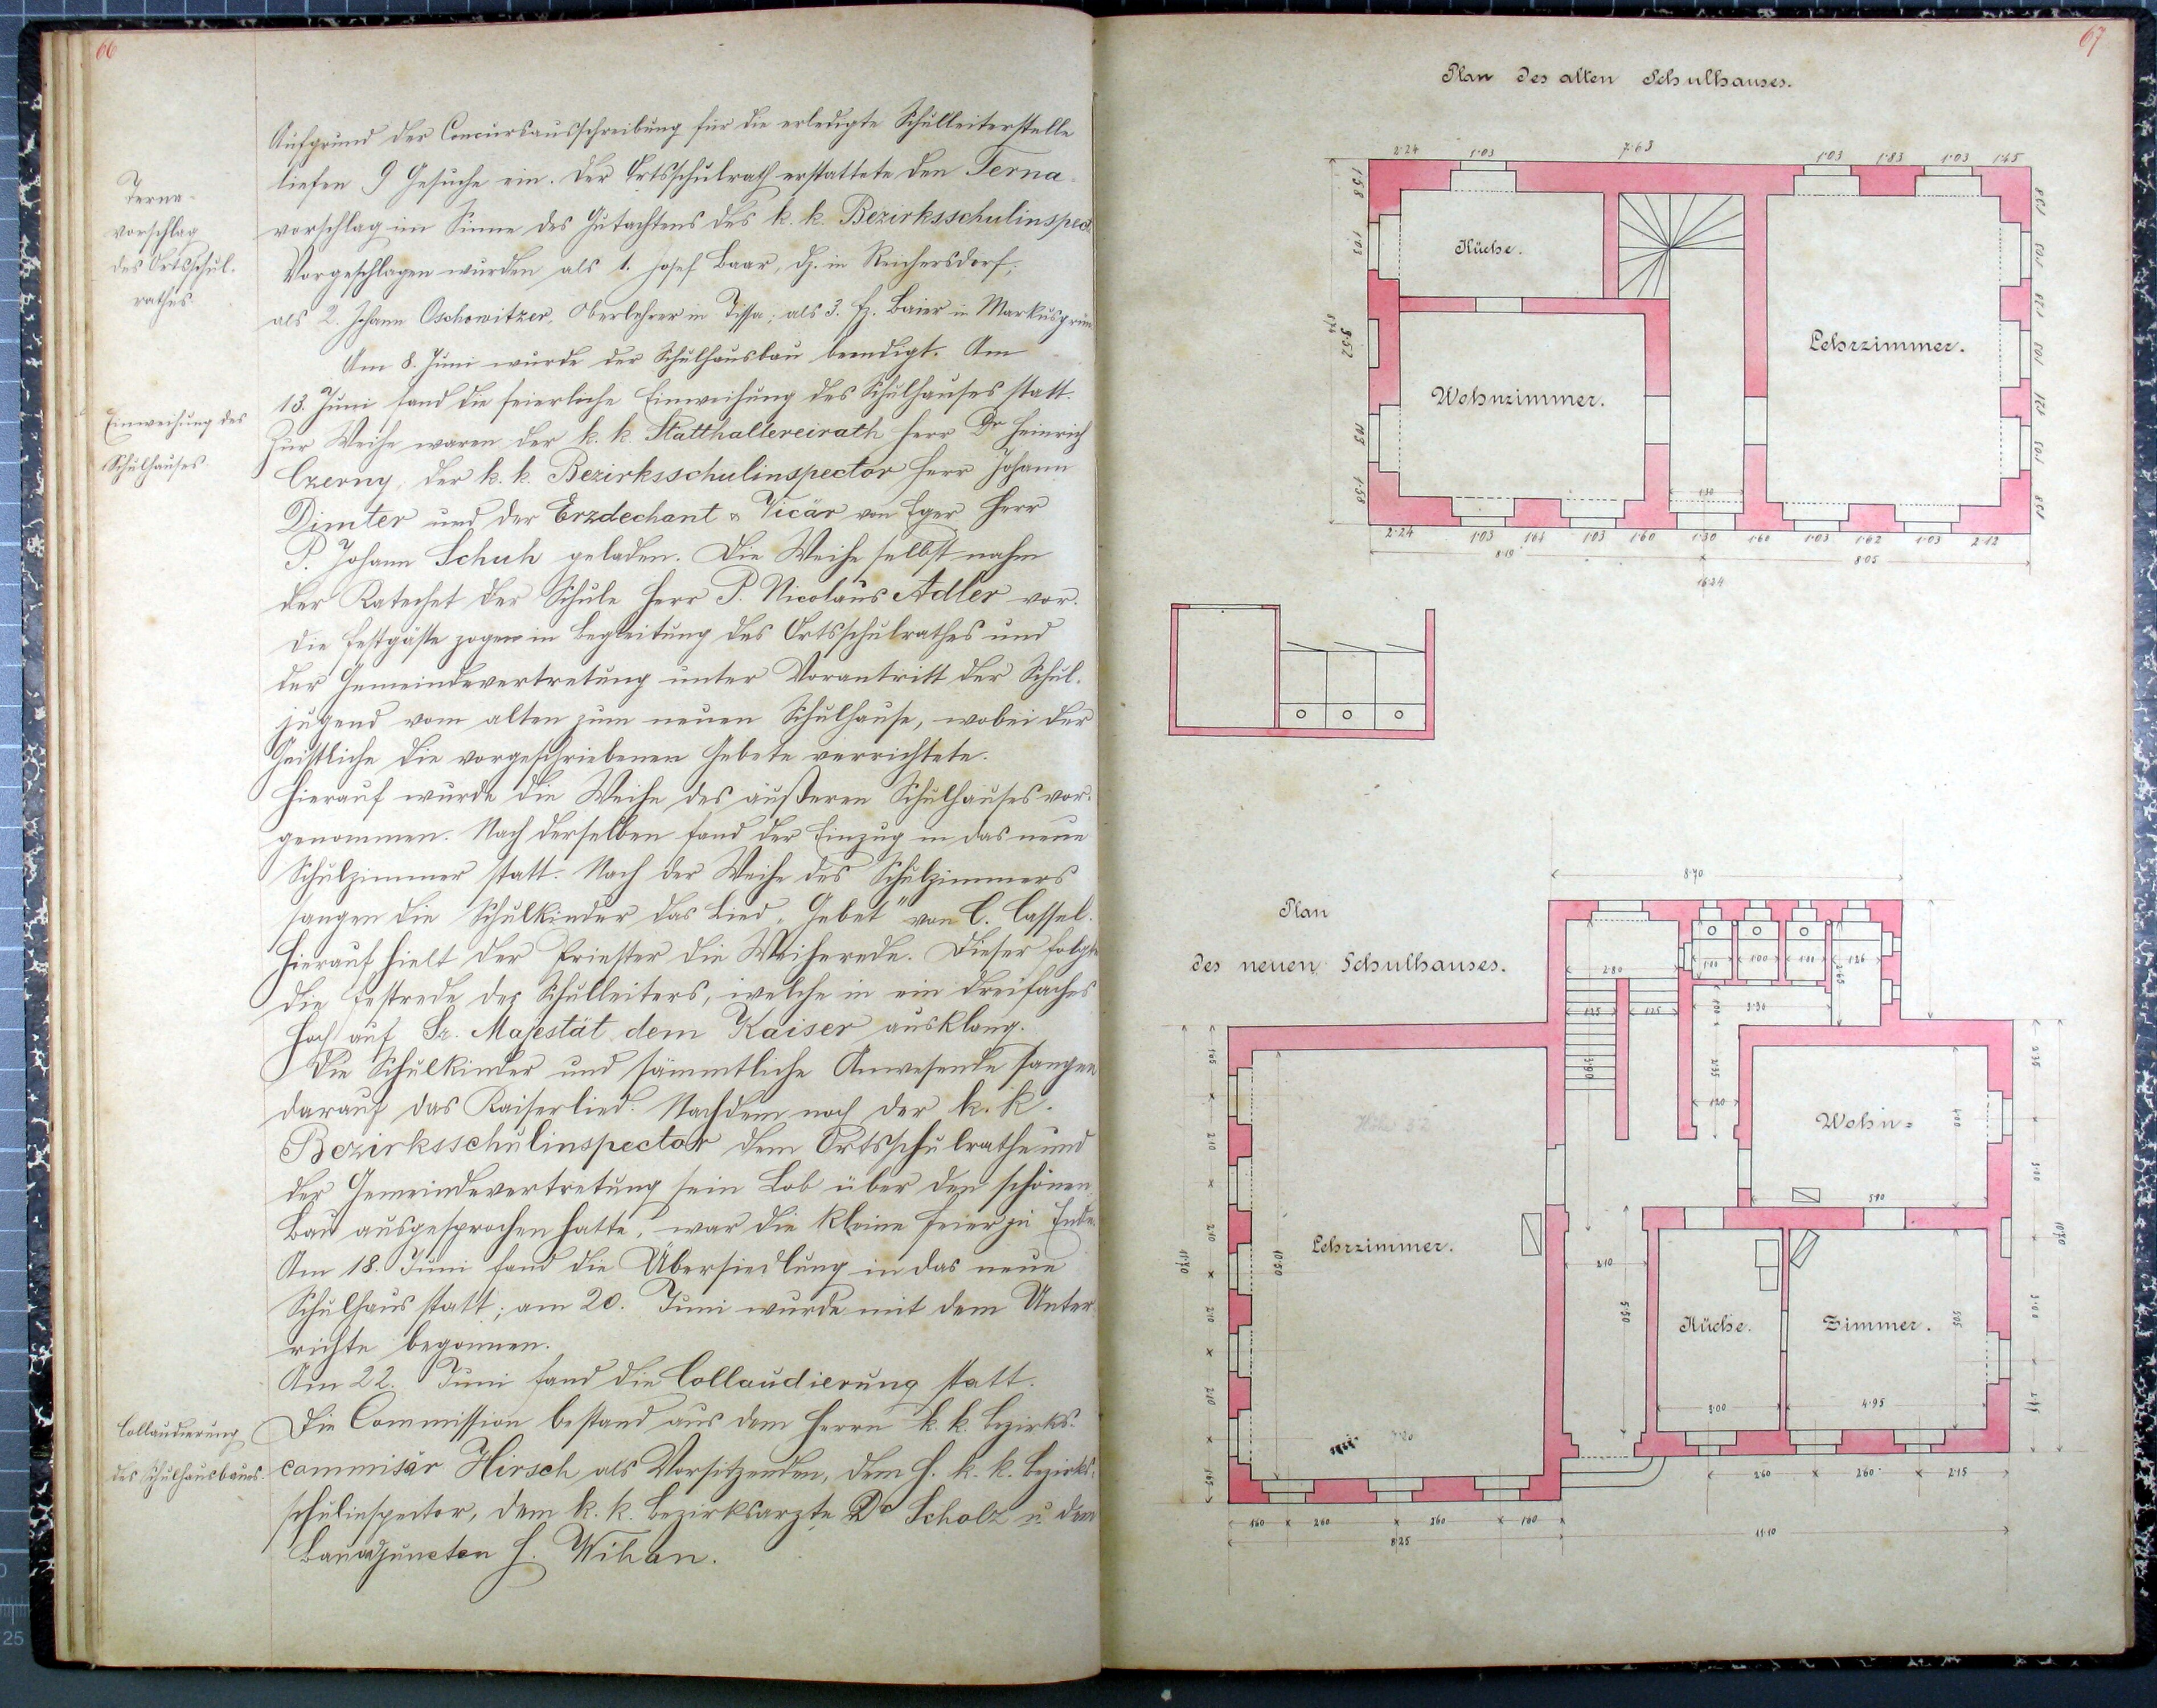 66
Aufgrund der Concursausschreibung für die erledigte Schulleiterstelle
liefen 9 Gesuche ein. Der Ortsschulrath erstattete den Terna-
vorschlag im Sinne des Gutachtens des k. k. Bezirksschulinspect.
Vorgeschlagen wurden als 1. Josef Baar, dz. in Reichersdorf;
als 2. Johann Oschowitzer, Oberlehrer in Tissa; als 3. Fz. Baier in Markusgrün
Am 8. Juni wurde der Schulhausbau beendigt. Am
13. Juni fand die feierliche Einweihung des Schulhauses statt.
Zur Weihe waren der k. k. Statthaltereirath Herr Dr Heinrich
Czerny, der k. k. Bezirksschulinspector Herr Johann
Dimter und der Erzdechant & Vicär von Eger Herr
P. Johann Schuh geladen. Die Weihe selbst nahm
der Katechet der Schule Herr P. Nicolaus Adler vor.
Die Festgäste zogen in Begleitung des Ortsschulrathes und
der Gemeindevertretung unter Vorantritt der Schul-
jugend vom alten zum neuen Schulhause, wobei der
Geistliche die vorgeschriebenen Gebete verrichtete.
Hierauf wurde die Weihe des äußeren Schulhauses vor-
genommen. Nach derselben fand der Einzug in das neue
Schulzimmer statt. Nach der Weihe des Schulzimmers
sangen die Schulkinder das Lied „Gebet" von C. Cassel.
Hierauf hielt der Priester die Weiherede. Dieser folgte
die Festrede des Schulleiters, welche in ein dreifaches
Hoch auf Sr. Majestät dem Kaiser ausklang.
Die Schulkinder und sämmtliche Anwesende sangen
darauf das Kaiserlied. Nachdem noch der k. k.
Bezirksschulinspector dem Ortsschulrathe und
der Gemeindevertretung sein Lob über den schönen
Bau ausgesprochen hatte, war die kleine Feier zu Ende.
Am 18. Juni fand die Übersiedlung in das neue
Schulhaus statt; am 20. Juni wurde mit dem Unter-
richte begonnen.
Am 22. Juni fand die Collaudierung statt.
Die Commission bestand aus dem Herrn k. k. Bezirks-
commisär Hirsch als Vorsitzenden, dem H. k. k. Bezirks-
schulinspector, dem k. k. Bezirksarzte Dr Scholz u. dem
Bauadjuncten H. Wihan.
Terna-
vorschlag
des Ortsschul-
rathes.
Einweihung des
Schulhauses.
Collaudierung
des Schulhausbaues.
67
Plan des alten Schulhauses.
2·24 1·03 7·63 1·03 1·83 1·03 1·45
1·58
1·03
9·52
1·03
1·58
Küche.
Wohnzimmer.
Lehrzimmer.
1·30
2·24 1·03 1·64 1·03 1·60 1·30 1·60 1·03 1·62 1·03 2·12
8·19 8·05
16·24
Plan
des neuen Schulhauses.
8·70
2·80 1·00 1·00 1·00 1·26
1·25 1·25 3·30
3·90
2·35
1·20
Wohn-
4·00
5·80
Lehrzimmer.
10·50
2·10
5·50
Küche.
Zimmer.
5·05
3·00 4·95
1·65
2·10
2·10
2·10
2·10
1·65
11·70
2·35
3·00
3·00
10·70
1·60 2·60 2·60 1·60
8·25
2·60 2·60 2·15
11·10
25